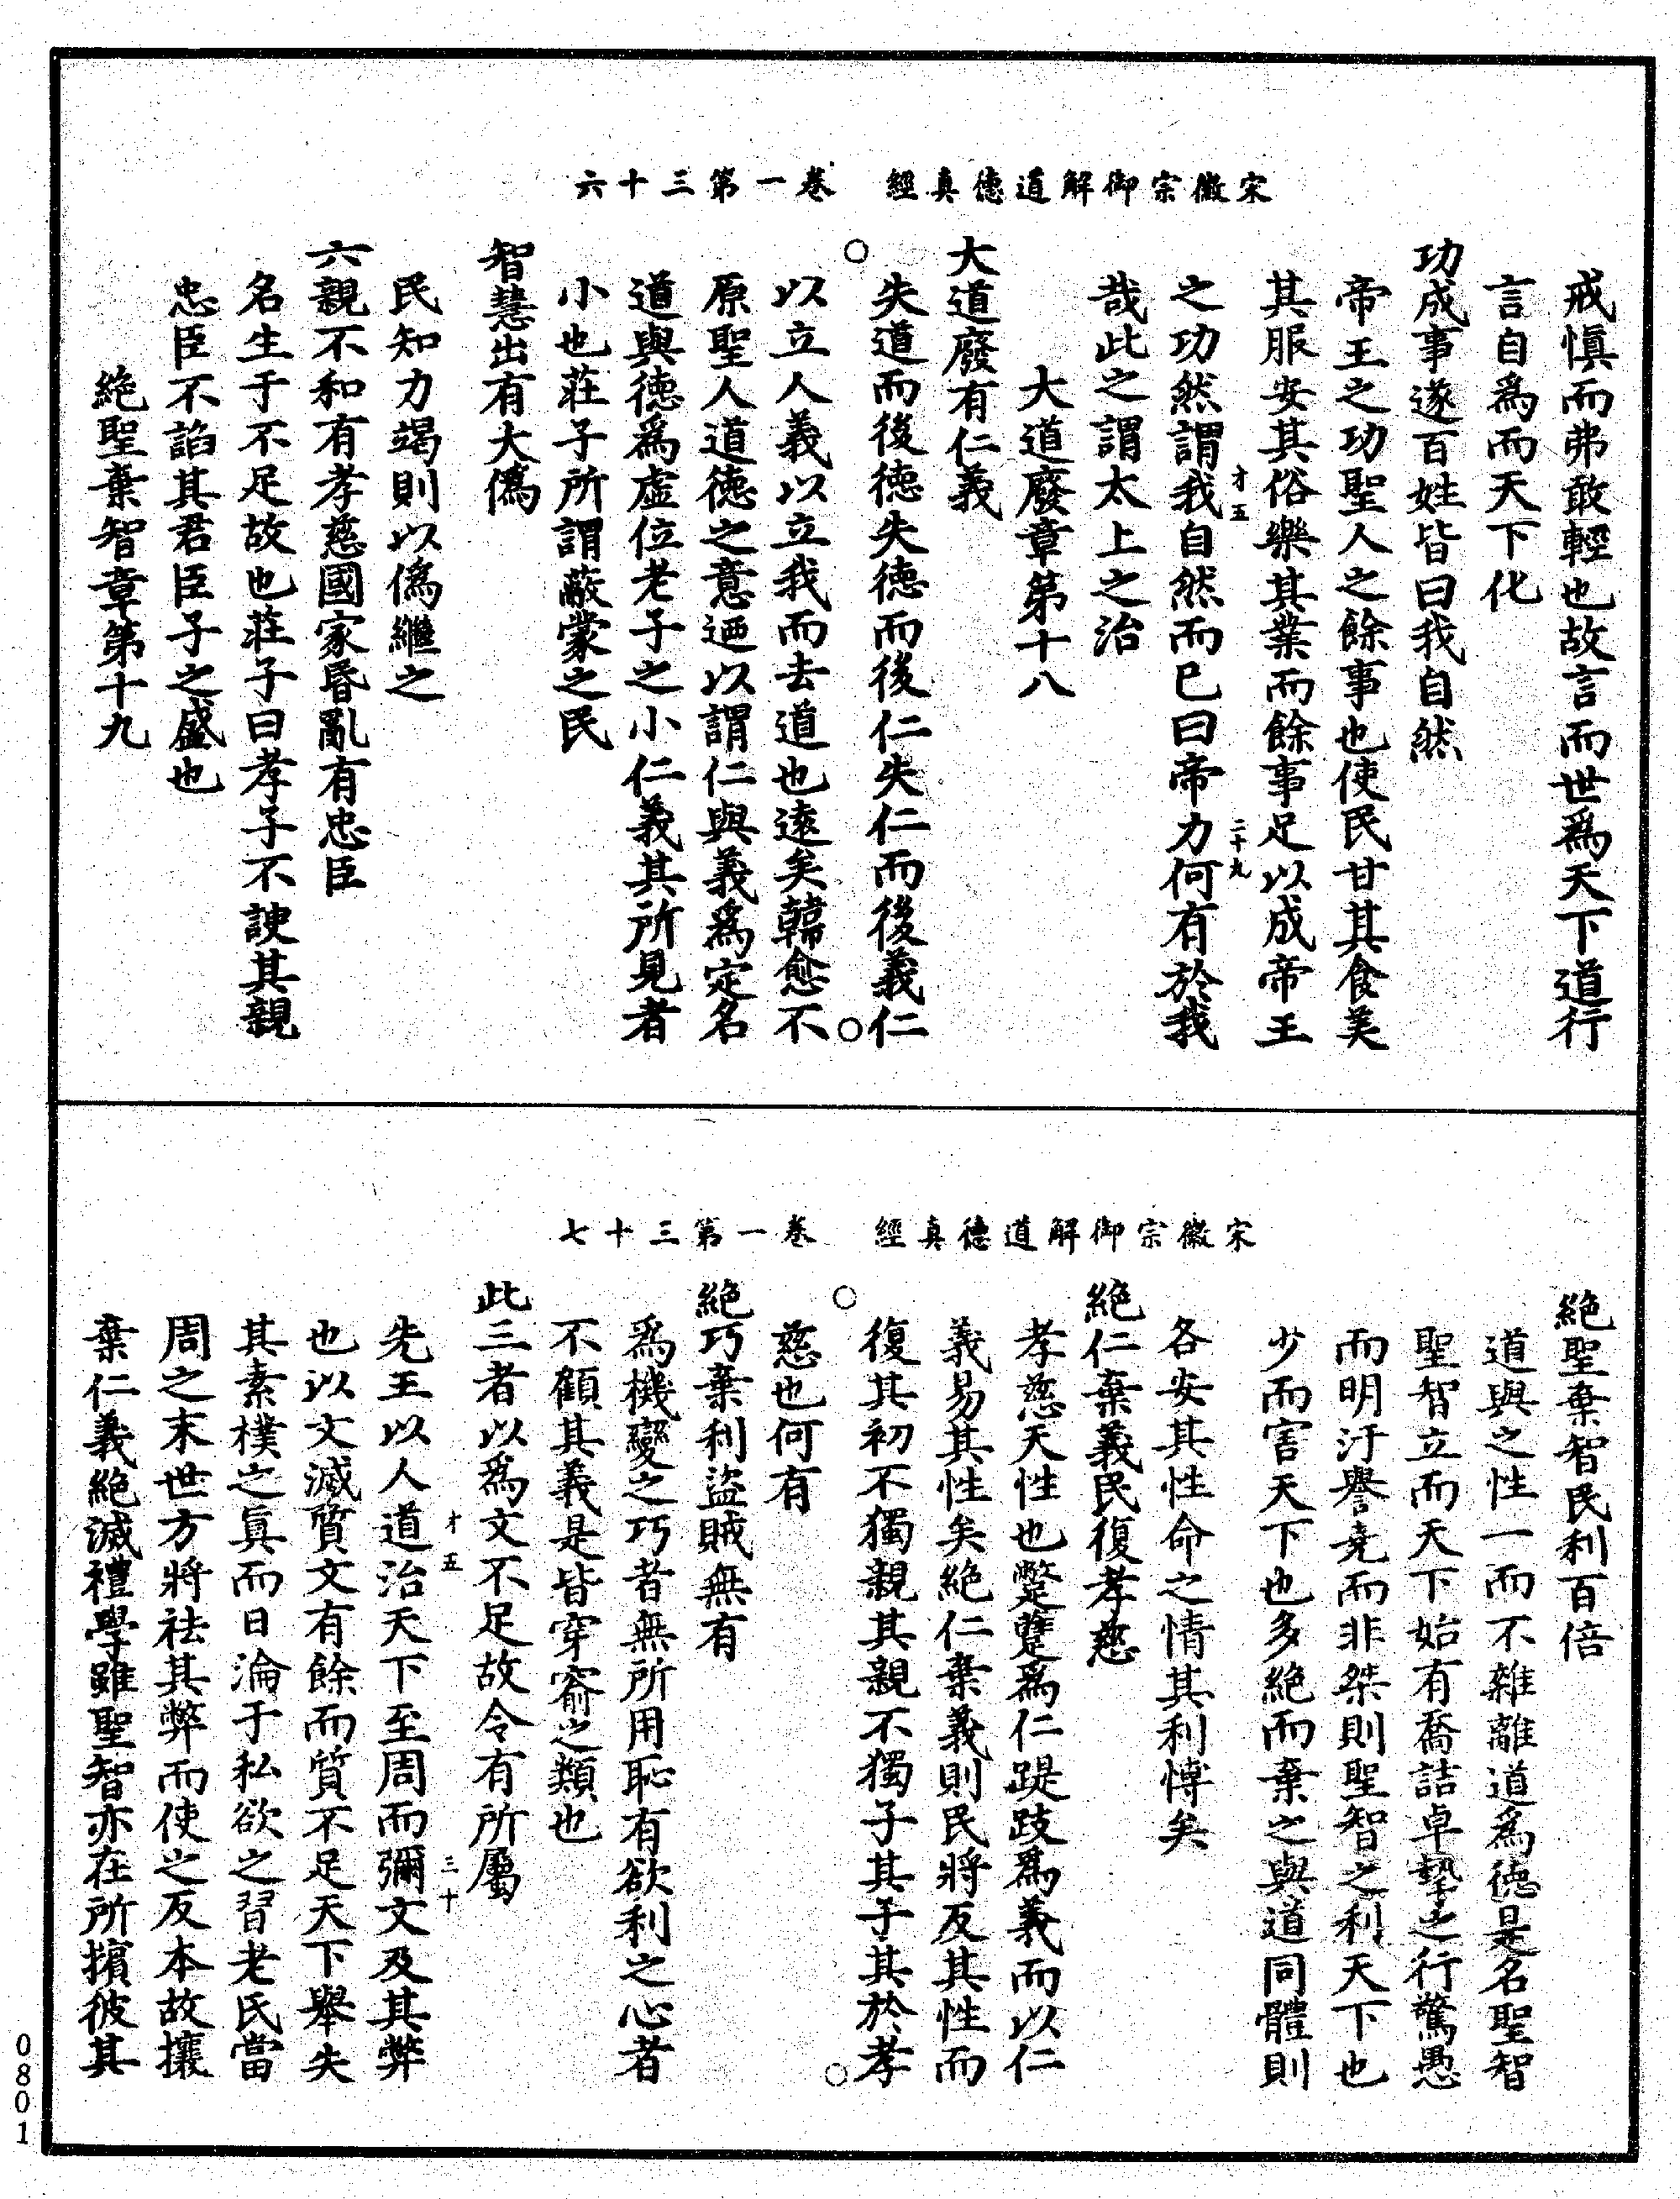 宋徽宗御解道德真經　卷一第三十六
戒愼而弗敢輕也故言而世爲天下道行
言自爲而天下化
功成事遂百姓皆曰我自然
帝王之功聖人之餘事也使民甘其食美
其服安其俗樂其業而餘事足以成帝王
才五　二十九
之功然謂我自然而已曰帝力何有於我
哉此之謂太上之治
大道廢章第十八
大道廢有仁義
失道而後德失德而後仁失仁而後義仁
以立人義以立我而去道也遠矣韓愈不
原聖人道德之意迺以謂仁與義爲定名
道與德爲虛位老子之小仁義其所見者
小也莊子所謂蔽蒙之民
智慧出有大僞
民知力竭則以僞繼之
六親不和有孝慈國家昏亂有忠臣
名生于不足故也莊子曰孝子不諛其親
忠臣不諂其君臣子之盛也
絶聖棄智章第十九
宋徽宗御解道德真經　卷一第三十七
絶聖棄智民利百倍
道與之性一而不雜離道爲德是名聖智
聖智立而天下始有喬詰卓摯之行驚愚
而明汙譽堯而非桀則聖智之利天下也
少而害天下也多絶而棄之與道同體則
各安其性命之情其利博矣
絶仁棄義民復孝慈
孝慈天性也蹩躠爲仁踶跂爲義而以仁
義易其性矣絶仁棄義則民將反其性而
復其初不獨親其親不獨子其子其於孝
慈也何有
絶巧棄利盜賊無有
爲機變之巧者無所用恥有欲利之心者
不顧其義是皆穿窬之類也
此三者以爲文不足故令有所屬
才五　三十
先王以人道治天下至周而彌文及其弊
也以文滅質文有餘而質不足天下舉失
其素樸之眞而日淪于私欲之習老氏當
周之末世方將祛其弊而使之反本故攘
棄仁義絶滅禮學雖聖智亦在所擯彼其
0801